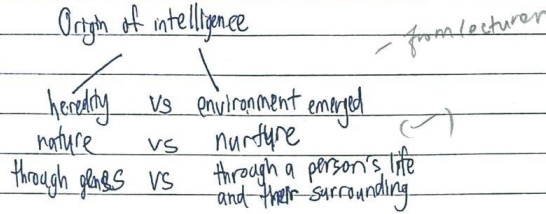 Origin of intelligence
- from lecturer
heredity vs environment emerged
nature vs nurture
(✓)
through genes vs through a person's life
and their surrounding